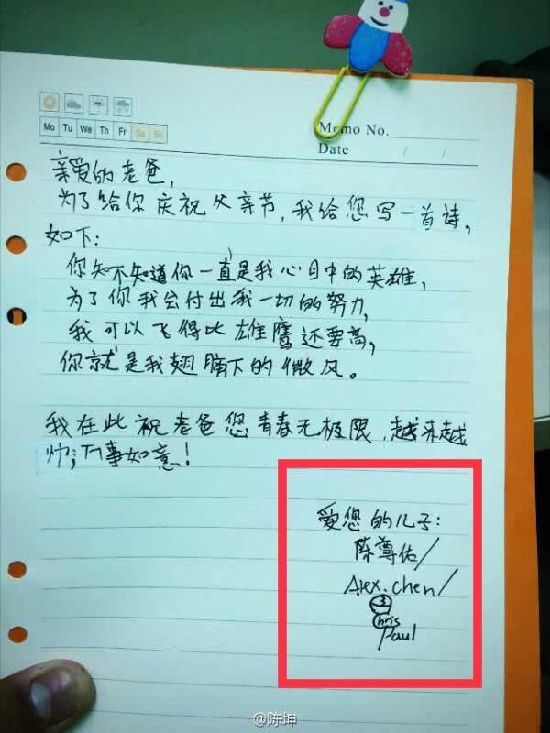 Mo Tu We Th Fr Sa Su
Memo No.
Date / /
亲爱的老爸,
为了给你庆祝父亲节,我给您写一首诗,
如下:
你知不知道你一直是我心目中的英雄,
为了你我会付出我一切的努力,
我可以飞得比雄鹰还要高,
你就是我翅膀下的微风。
我在此祝老爸您青春无极限,越来越
帅;万事如意!
爱您的儿子:
陈尊佑/
Alex.chen/
3
Chris
Paul
@陈坤